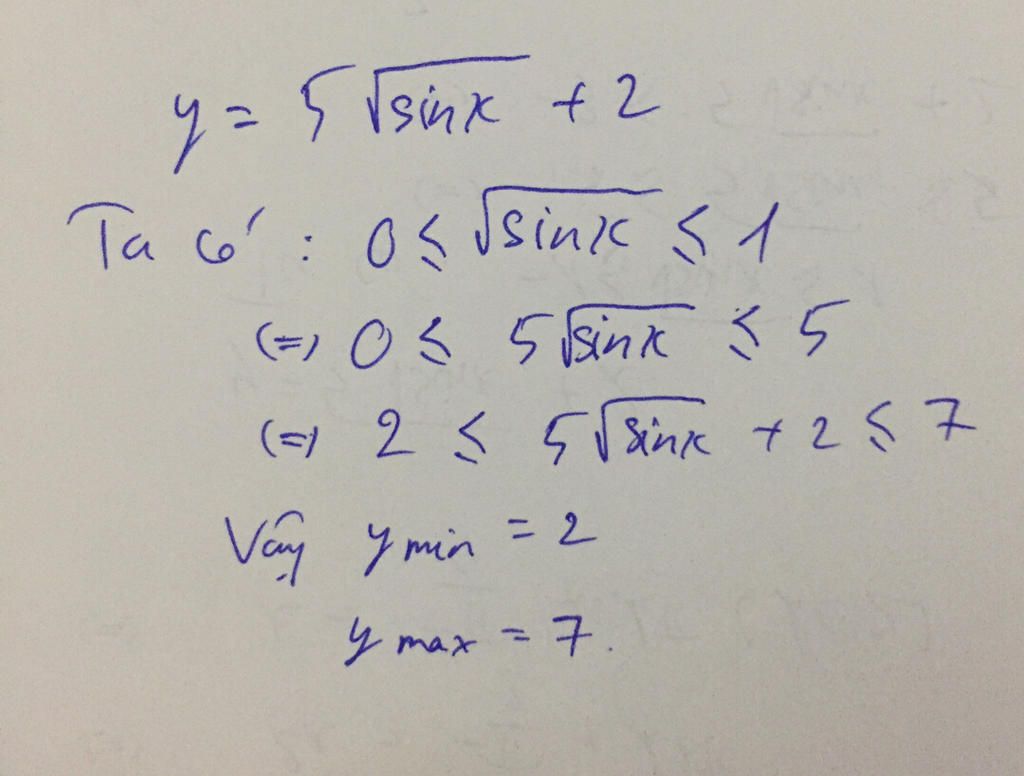 y = 5 √sinx + 2
Ta có : 0 ≤ √sinx ≤ 1
(=) 0 ≤ 5 √sinx ≤ 5
(=) 2 ≤ 5 √sinx + 2 ≤ 7
Vậy y min = 2
y max = 7.